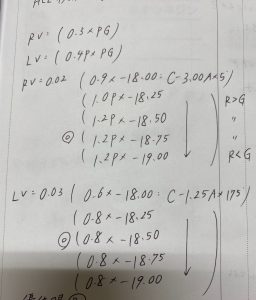 RV = (0.3 × PG)
LV = (0.4P × PG)
RV = 0.02 (0.9 × -18.00 : C-3.00 A×5
(1.0P × -18.25 R>G
(1.2P × -18.50 "
◎ (1.2P × -18.75 "
(1.2P × -19.00 R≤G
LV = 0.03 (0.6 × -18.00 : C-1.25 A×175
(0.8 × -18.25
◎ (0.8 × -18.50
(0.8 × -18.75
(0.8 × -19.00